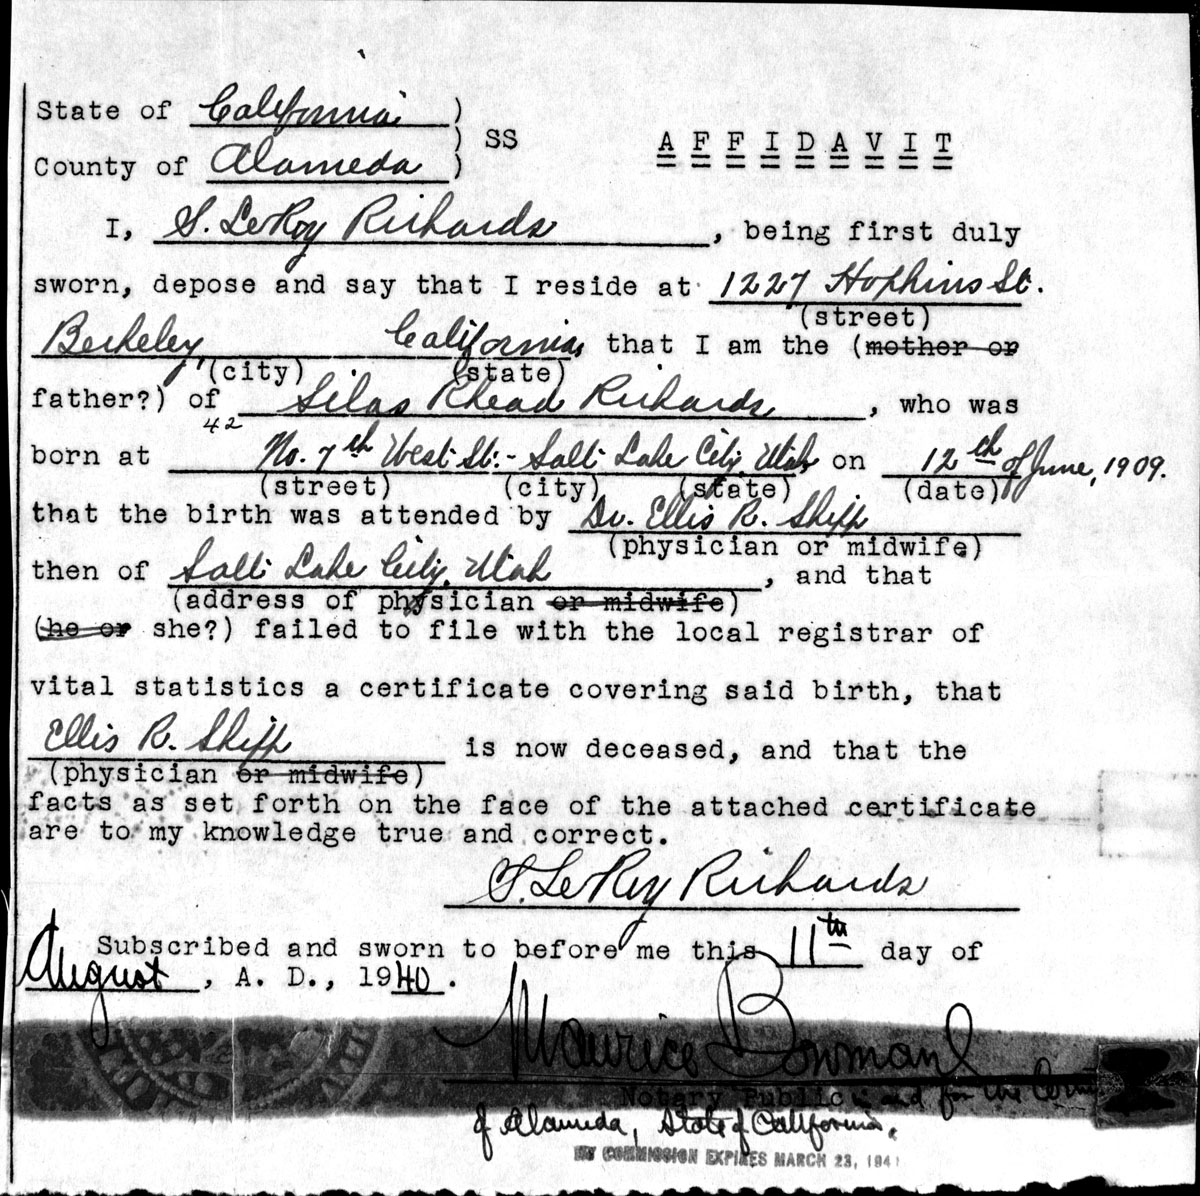 State of California )
) SS A F F I D A V I T
County of Alameda )
I, S. LeRoy Richards, being first duly
sworn, depose and say that I reside at 1227 Hopkins St.
(street)
Berkeley California that I am the (mother or
(city) (state)
father?) of Silas Rhead Richards, who was
42
born at No. 7th West St. - Salt Lake City, Utah on 12th of June, 1909.
(street) (city) (state) (date)
that the birth was attended by Dr. Ellis R. Shipp
(physician or midwife)
then of Salt Lake City, Utah, and that
(address of physician or midwife)
(he or she?) failed to file with the local registrar of
vital statistics a certificate covering said birth, that
Ellis R. Shipp is now deceased, and that the
(physician or midwife)
facts as set forth on the face of the attached certificate
are to my knowledge true and correct.
S. LeRoy Richards
Subscribed and sworn to before me this 11th day of
August, A. D., 1940.
Maurice Bowman
Notary Public and for the
of Alameda, State of California.
MY COMMISSION EXPIRES MARCH 23, 194